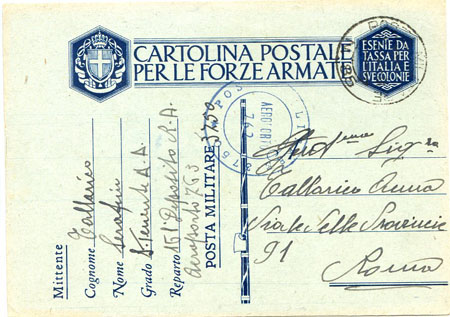 CARTOLINA POSTALE
PER LE FORZE ARMATE
ESENTE DA
TASSA PER
L'ITALIA E
SUE COLONIE
Mittente
Cognome Tallarico
Nome Serafin
Grado S. Tenente A.A.
Reparto 151 Deposito R.A.
Aeroporto 763
POSTA MILITARE 3750
763
Sig.ra
Tallarico Anna
Viale delle Provincie
91
Roma